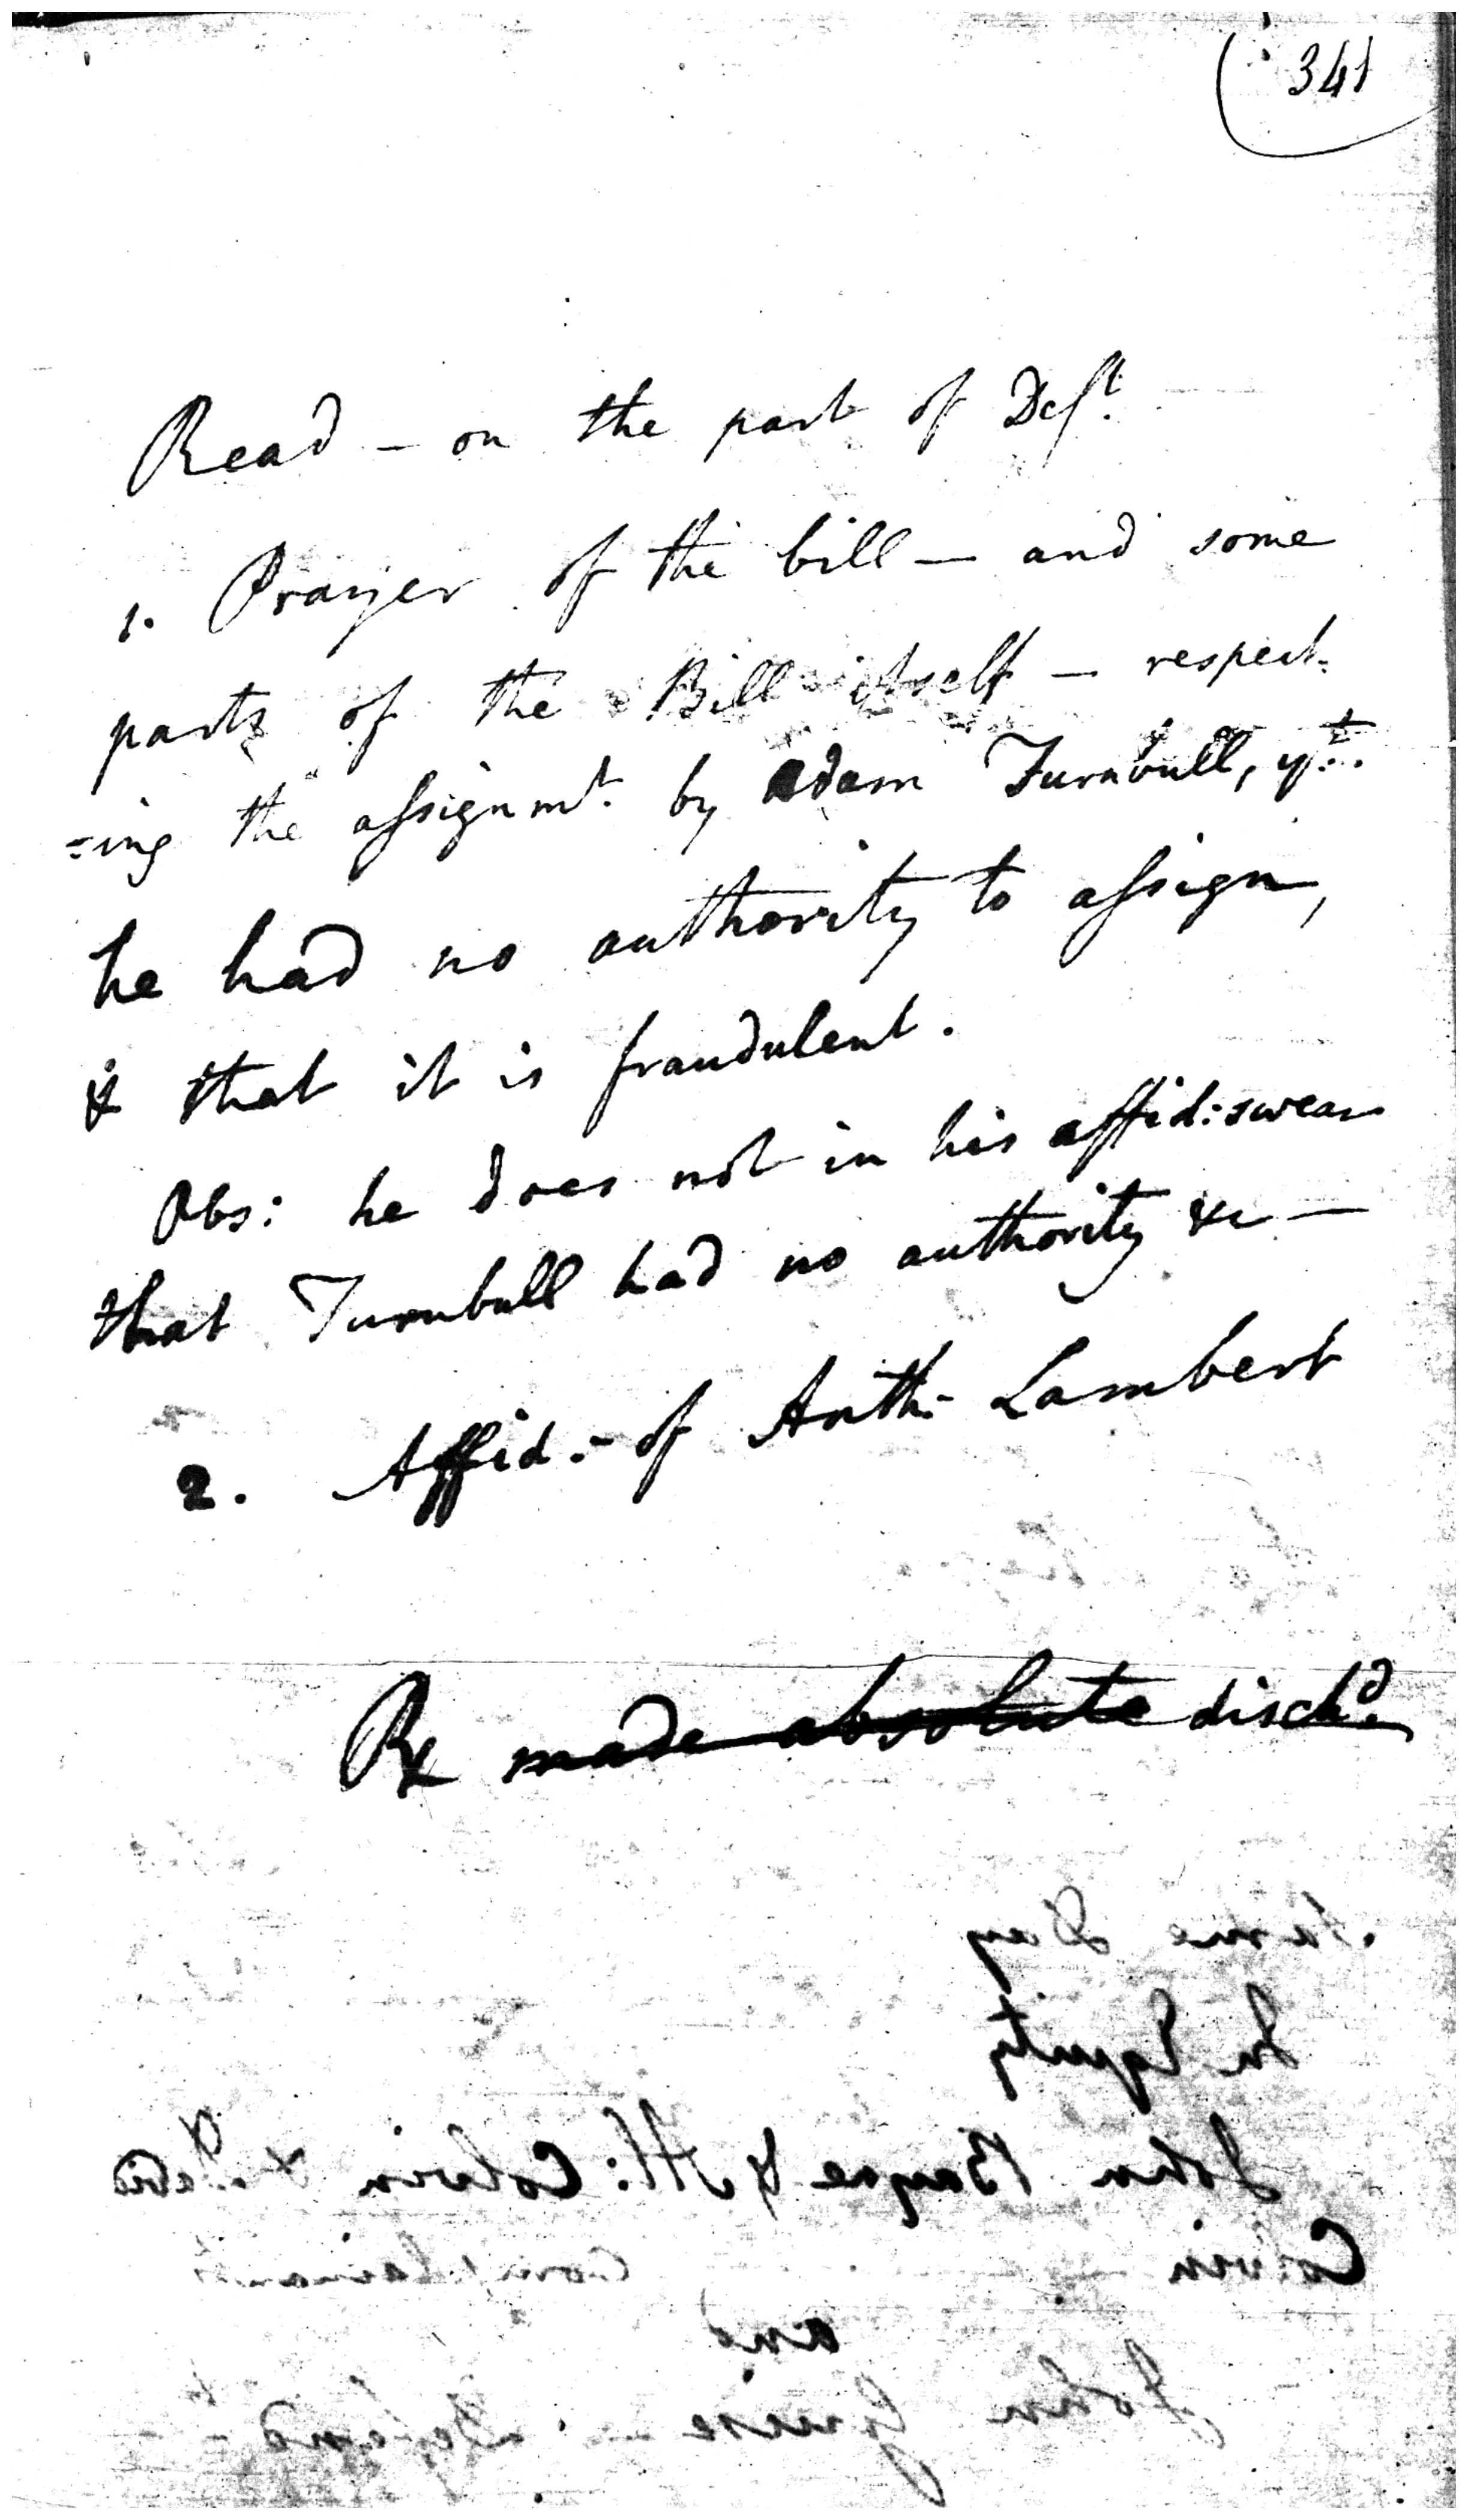 341
Read – on the part of Deft.
1. Prayer of the bill – and some
parts of the Bill itself – respect=
=ing the assignmt. by Adam Turnbull, yt.
he had no authority to assign,
& that it is fraudulent.
Obs: he does not in his affid: swear
that Turnbull had no authority &c –
2. Affid:- of Anth:- Lambert
Rx made absolute dischd.
Same Day
In Equity
John Bayne & Al: Colvin & David
Colvin Complainants
and
John Guise Defend